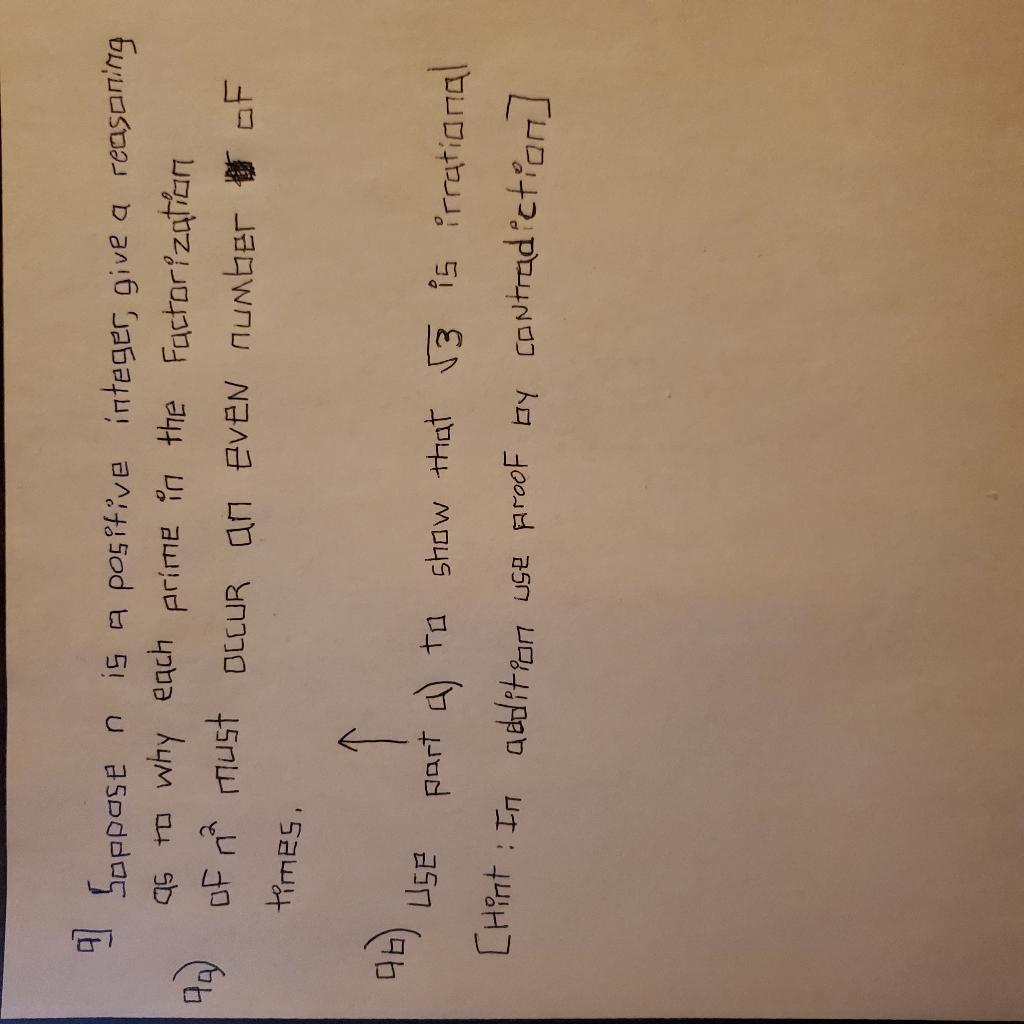 9] Suppose n is a positive integer, give a reasoning
as to why each prime in the Factorization
9a) of n² must occur an even number of
times.
↑
9b) Use part a) to show that √3 is irrational
[Hint: In addition use proof by contradiction]